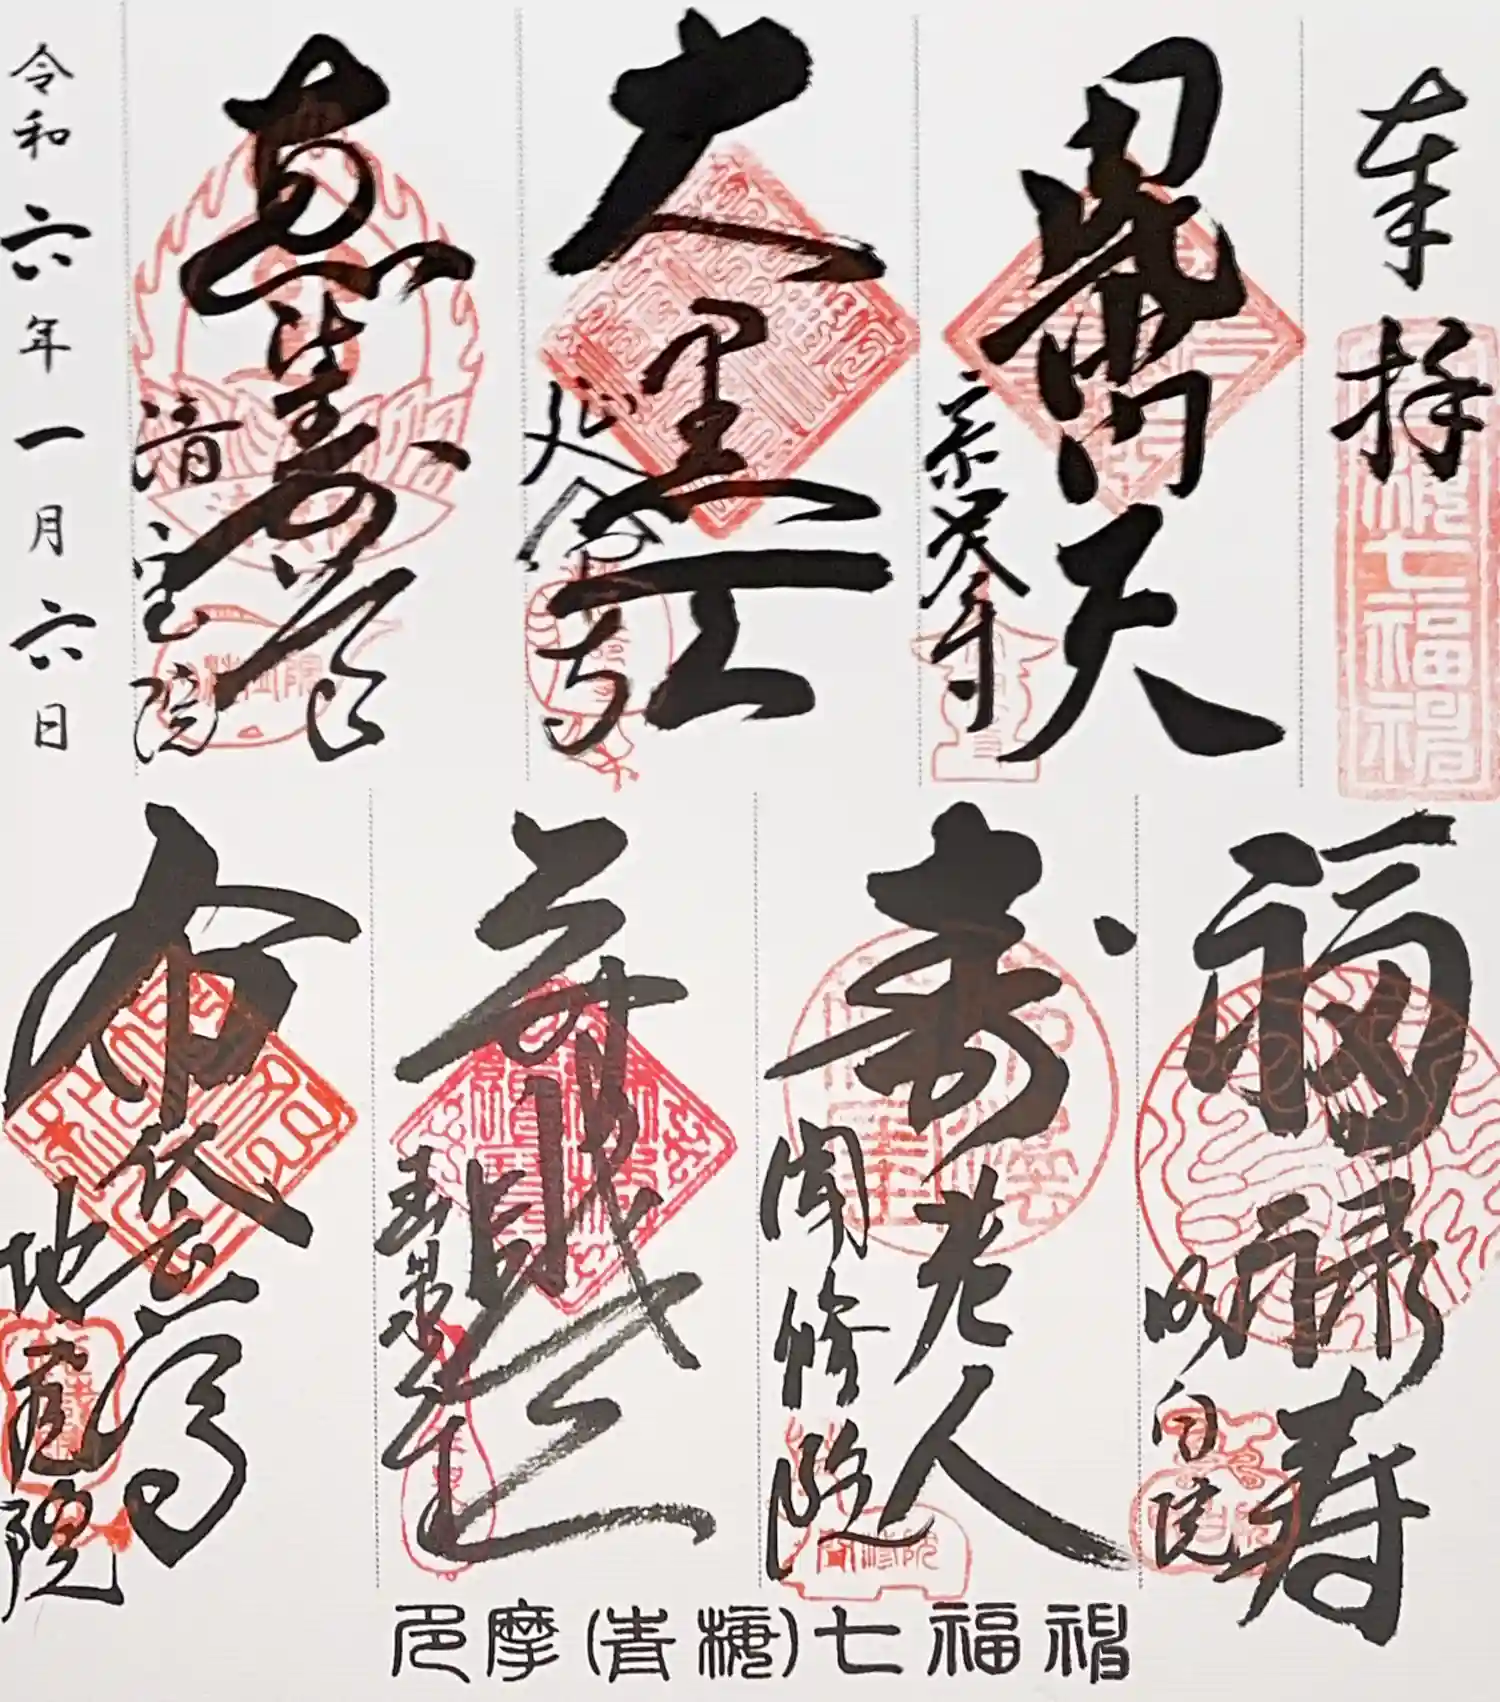 奉拝
七福神
毘沙門天
宗泉寺
大黒天
延命寺
恵比寿尊
清宝院
令和六年一月六日
福禄寿
明白院
寿老人
聞修院
聞修院
弁財天
玉泉寺
布袋尊
地蔵院
多摩(青梅)七福神